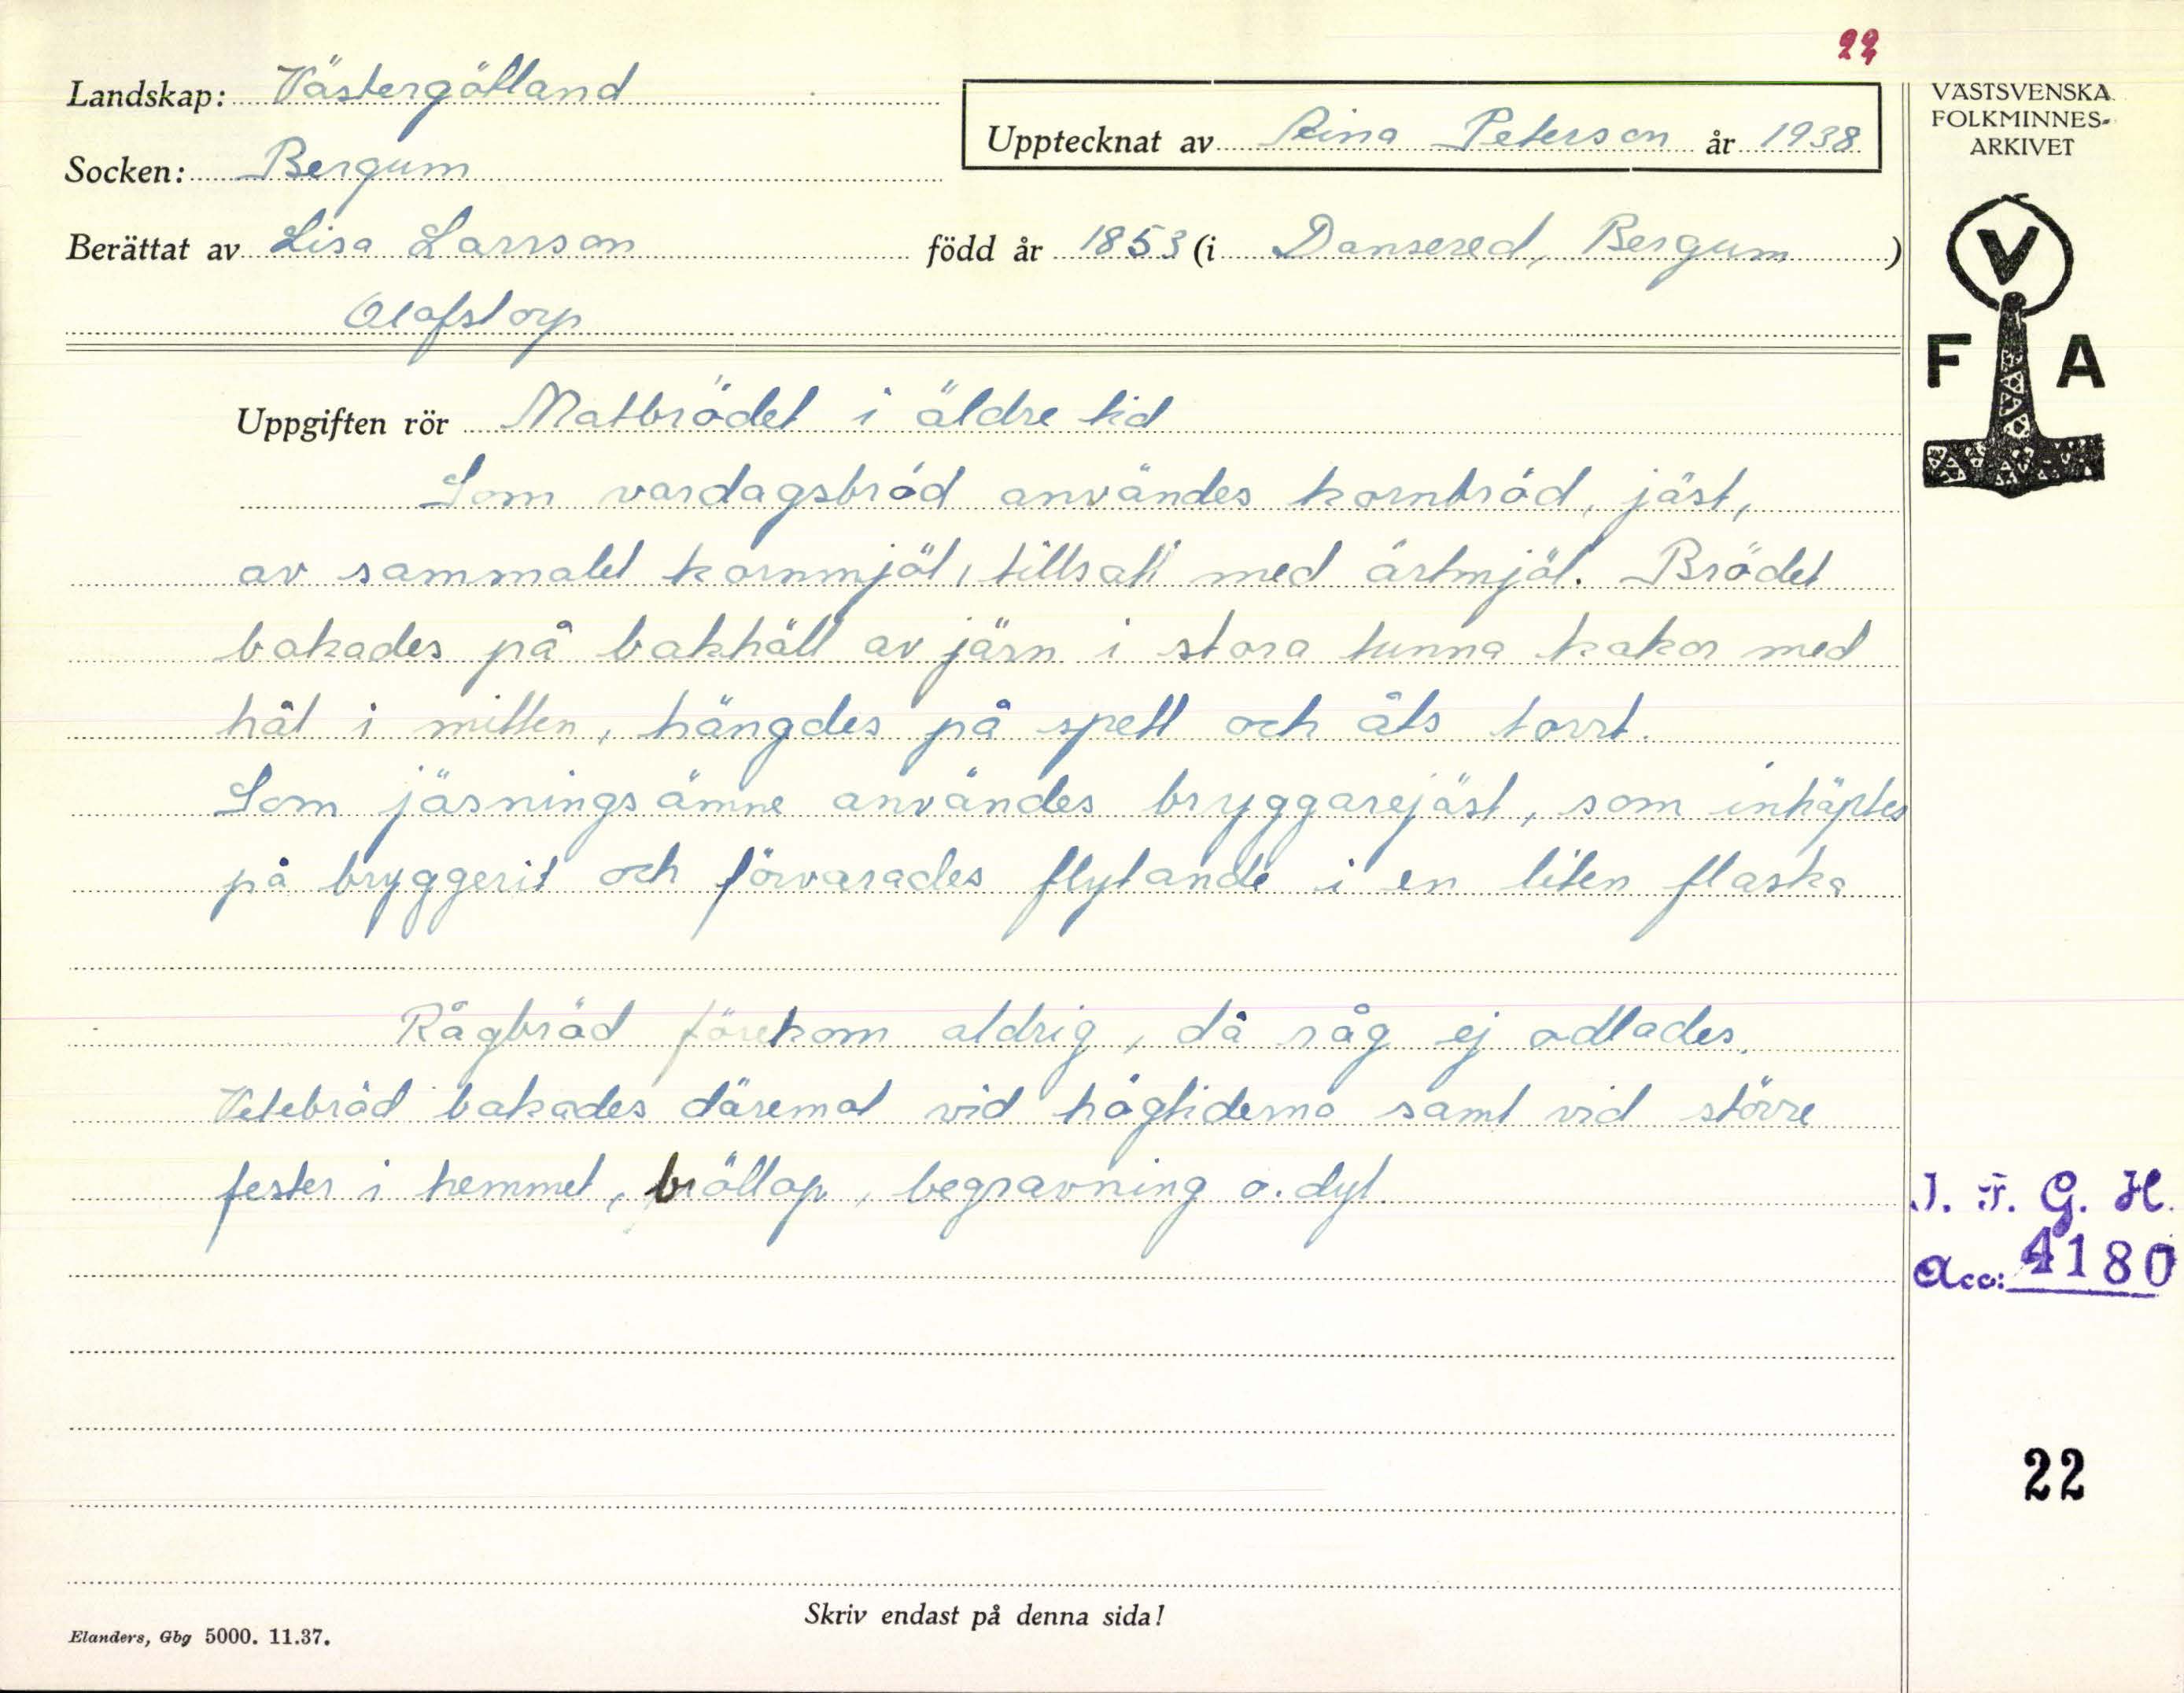 22
Landskap: Västergötland
VÄSTSVENSKA
FOLKMINNES-
ARKIVET
Upptecknat av Rina Peterson år 1938
Socken: Bergum
Berättat av Lisa Larsson född år 1853 (i Dansered, Bergum)
Olofstorp
V
F A
Uppgiften rör Matbrödet i äldre tid
Som vardagsbröd användes kornbröd, jäst,
av sammalet kornmjöl, tillsatt med ärtmjöl. Brödet
bakades på bakhäll av järn i stora tunna kakor med
hål i mitten, hängdes på spett och åts torrt.
Som jäsningsämne användes bryggarejäst, som inköptes
på bryggerit och förvarades flytande i en liten flaska
Rågbröd förekom aldrig, då råg ej odlades.
Vetebröd bakades däremot vid högtiderna samt vid större
fester i hemmet, bröllop, begravning o. dyl.
I. F. G. H.
Acc: 4180
22
Skriv endast på denna sida!
Elanders, Gbg 5000. 11.37.